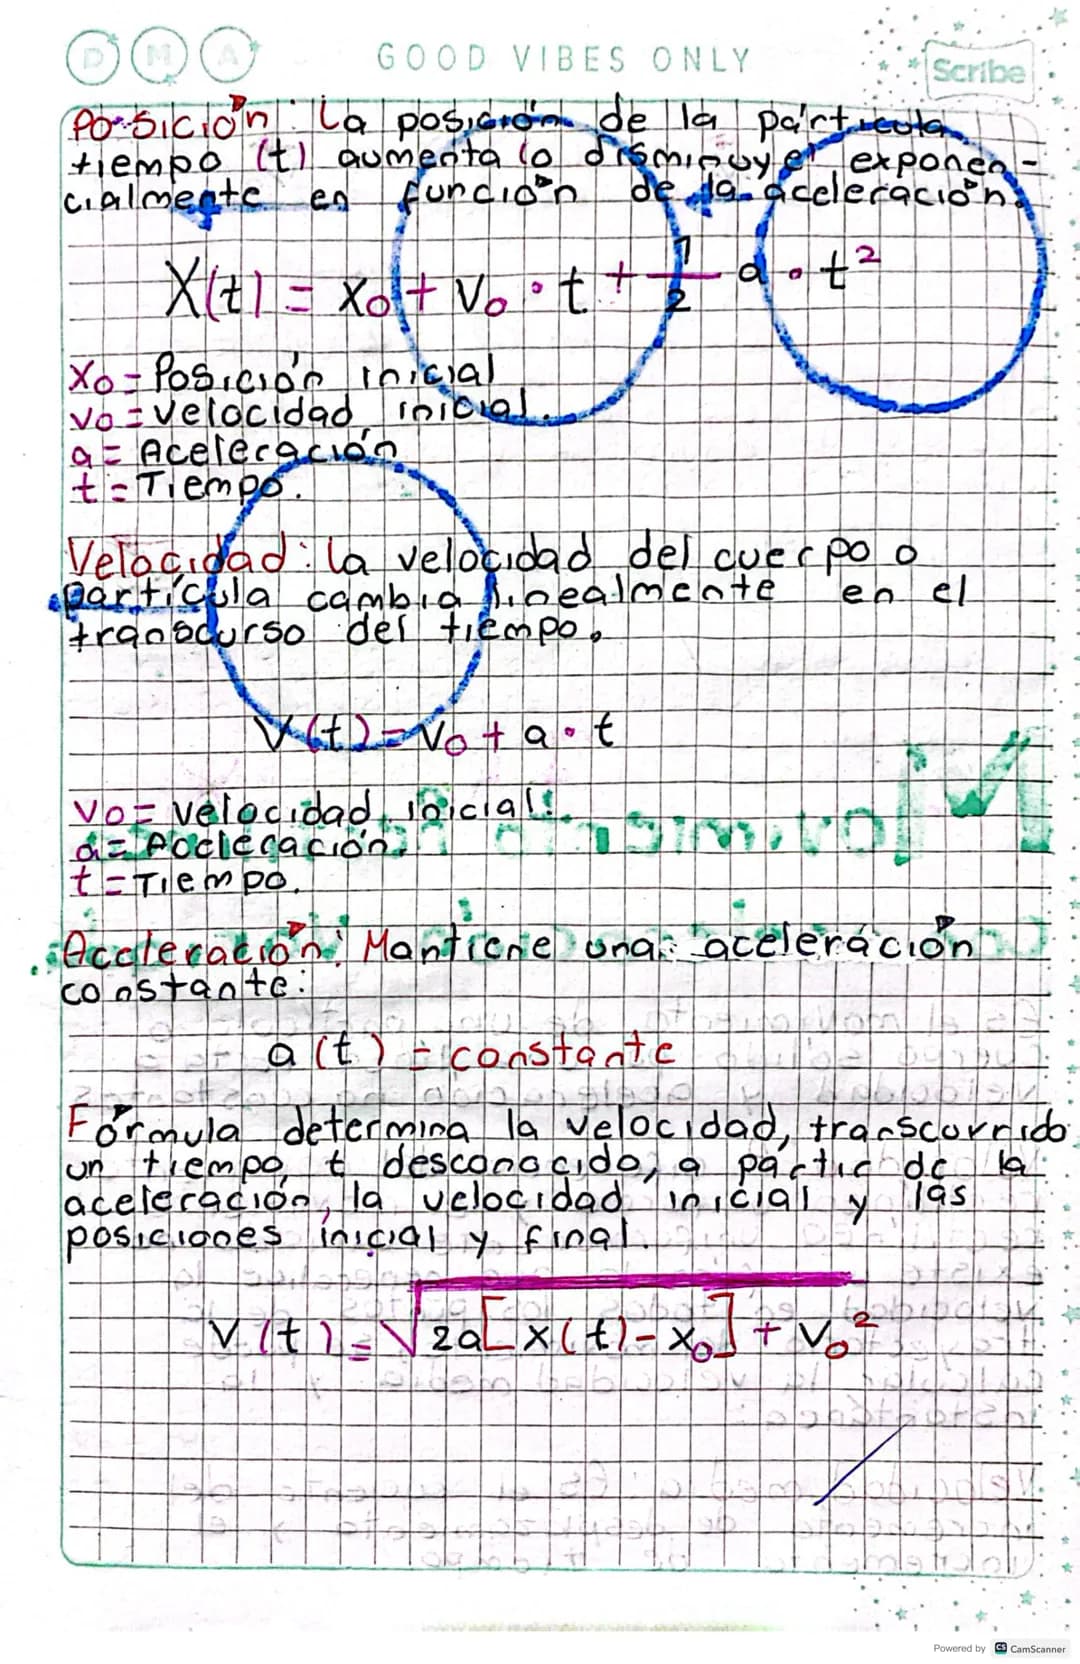 D M A GOOD VIBES ONLY Scribe
Posición: La posición de la partícula
tiempo (t) aumenta (o disminuye) exponen-
cialmente en función de la aceleración.
X(t) = x₀ + v₀ · t + 1/2 a · t²
x₀ = Posición inicial
v₀ = velocidad inicial.
a = Aceleración
t = Tiempo.
Velocidad: la velocidad del cuerpo o
partícula cambia linealmente en el
transcurso del tiempo.
V(t) = v₀ + a · t
v₀ = velocidad inicial.
a = Aceleración.
t = Tiempo.
Aceleración: Mantiene una aceleración
constante:
a(t) = constante
Fórmula determina la velocidad, transcurrido
un tiempo t desconocido, a partir de la
aceleración, la velocidad inicial y las
posiciones inicial y final.
V(t) = √2a[x(t) - x₀] + v₀²
Powered by CS CamScanner